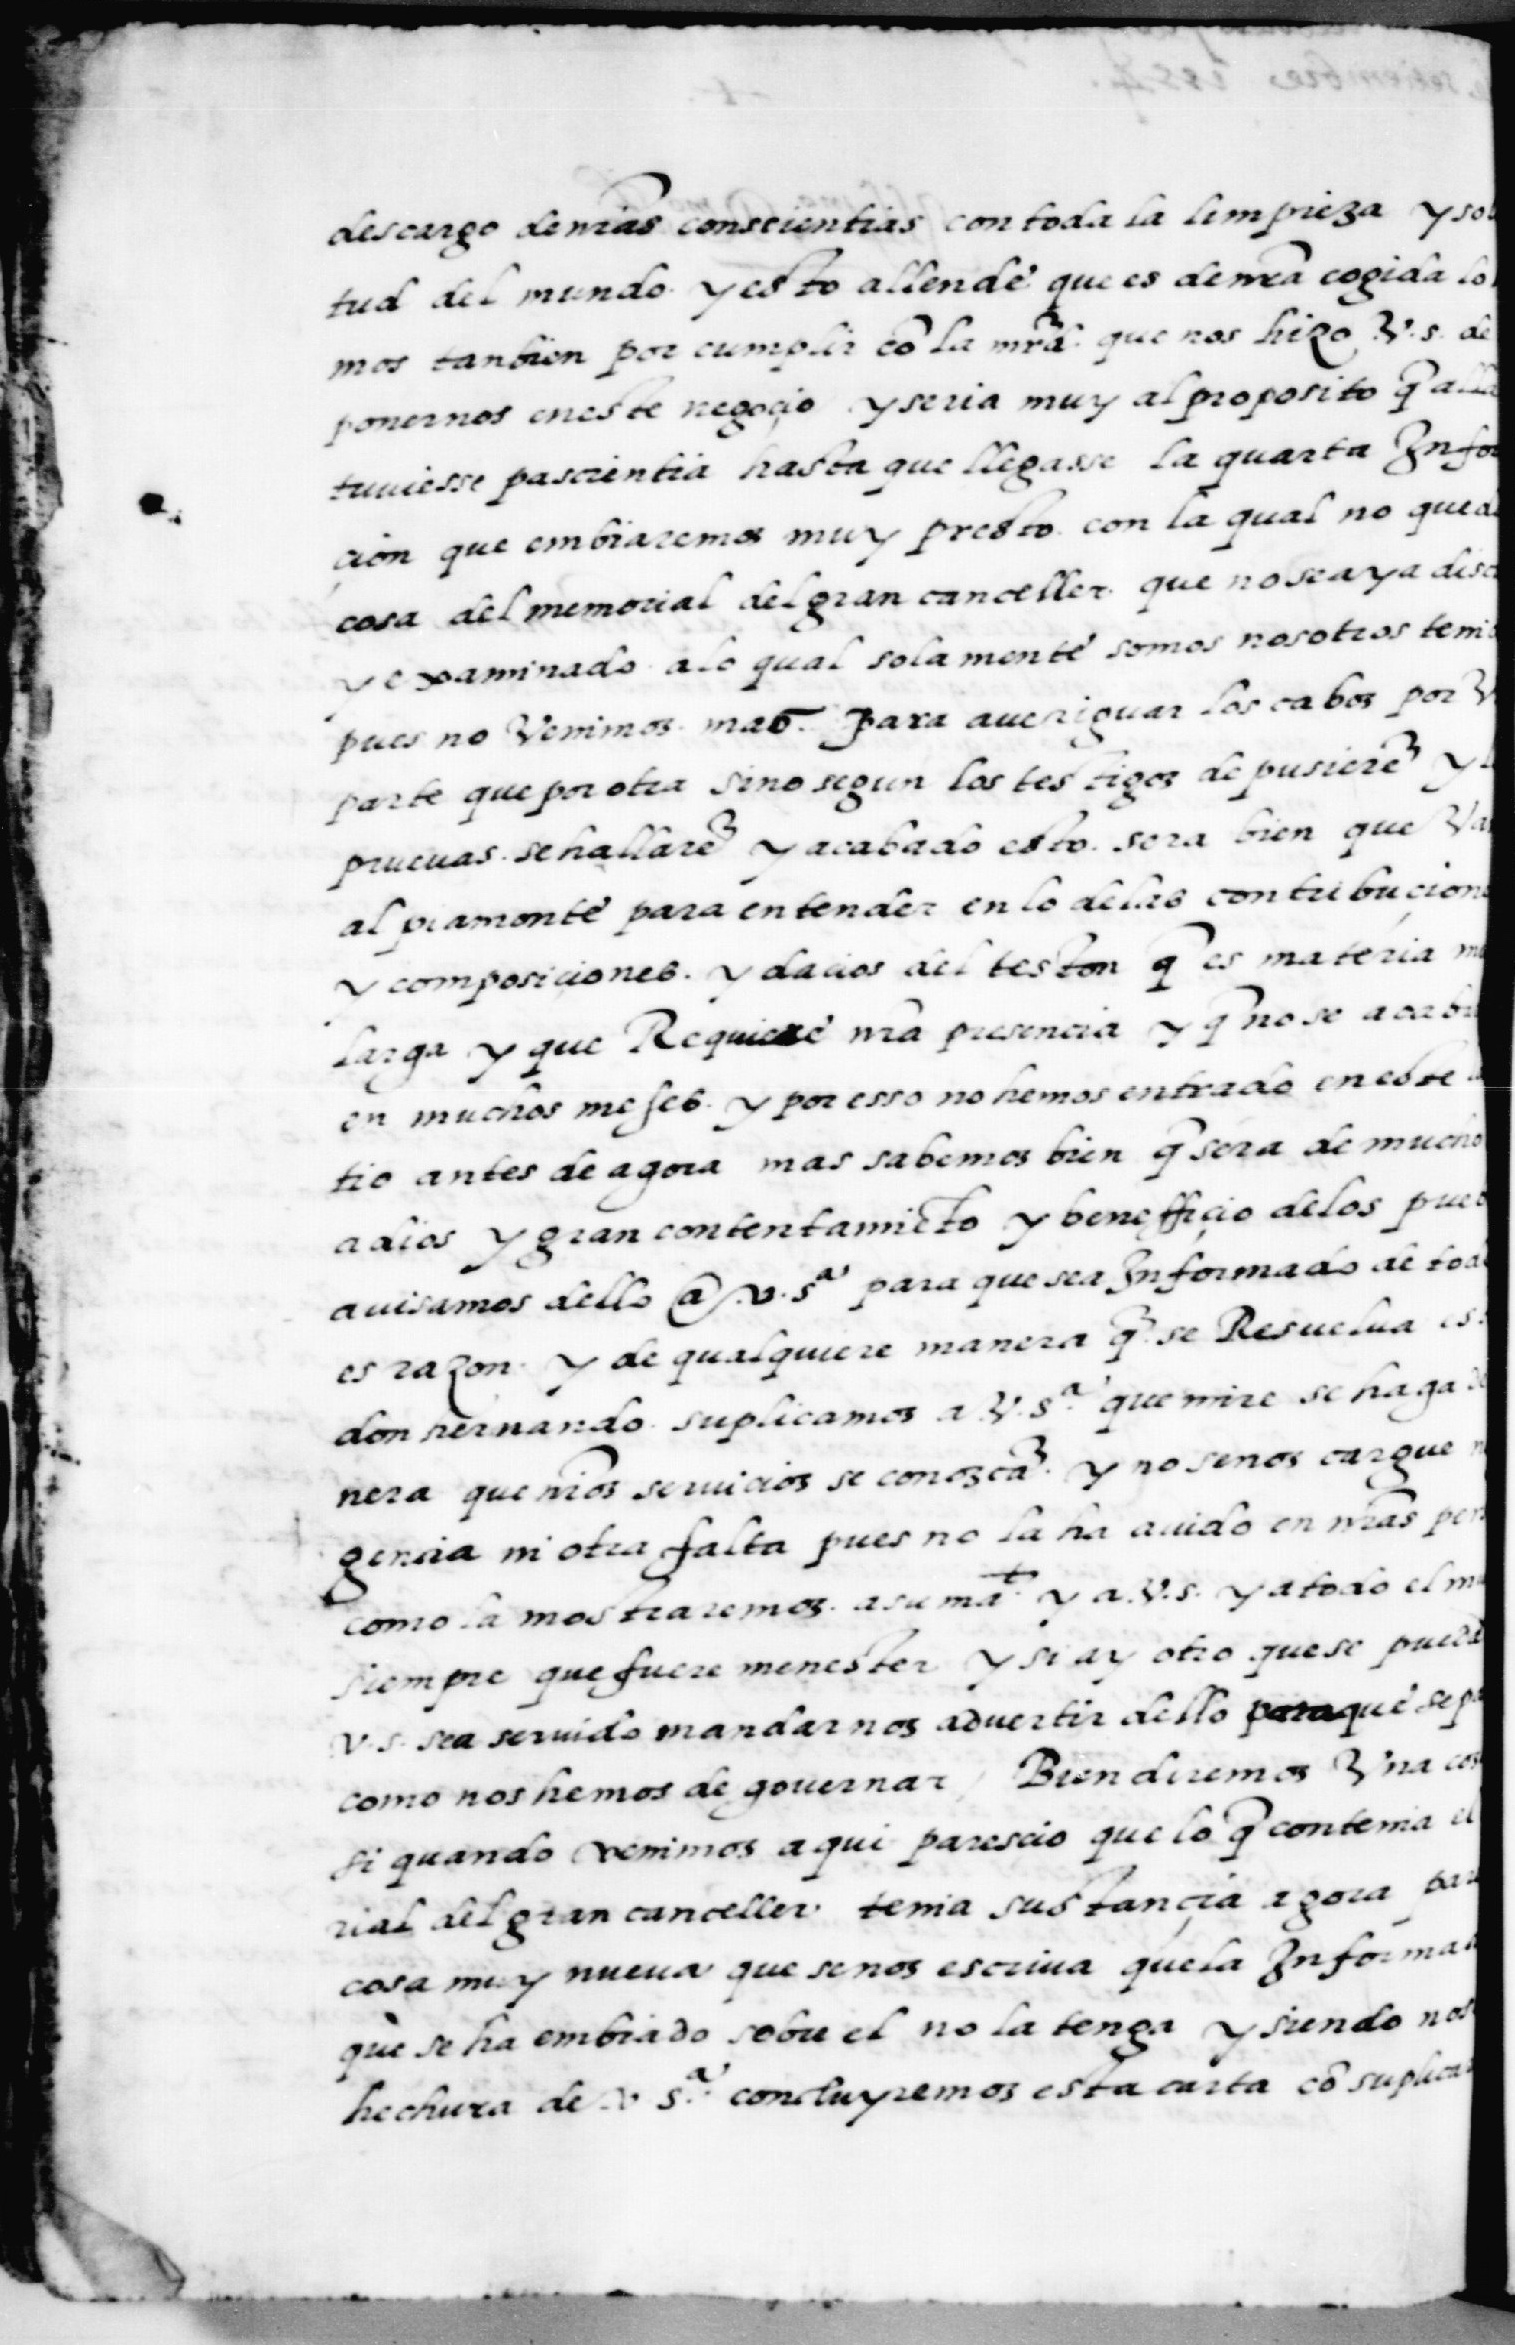 descargo de nr̃as conscientias con toda la limpieza y so
tud del mundo. y esto allende que es de nr̃a cogida lo
mos tanbien por cumplir cõ la mr̃d. que nos hizo V.s. de
ponernos en este negoçio y seria muy al proposito q̃ alla
tuuiesse pascientia hasta que llegasse la quarta Infor
çion que embiaremos muy presto. con la qual no queda
cosa del memorial del gran canceller. que no sea ya disc
y examinado. a lo qual sola mente somos nosotros teni
pues no Venimos. mas. para aueriguar los cabos por V
parte que por otra sino segun los testigos depusierẽ y l
prueuas. se hallarẽ y acabado esto. sera bien que Va
al piamonte para entender en lo delas contribuçion
y composiçiones. y dacios del teston q̃ es materia m
larga y que Requiere nr̃a presencia y q̃ no se acab
en muchos meses. y por esso no hemos entrado en este
tio antes de agora mas sabemos bien q̃ sera de mucho
a dios y gran contentamiẽto y benefiçio delos pueb
auisamos dello a .v. sª para que sea Informado de tod
es razon. y de qualquiere manera q̃. se Resuelua es
don hernando. suplicamos a V. sª. que mire se haga de
nera que nr̃os seruicios se conozcã. y no se nos cargue n
gencia ni otra falta pues no la ha auido en nr̃as per
como la mostraremos. a su mat. y a .V.s. y a todo el m
siempre que fuere menester y si ay otro que se pued
v.s. sea seruido mandarnos aduertir dello para que sepa
como nos hemos de gouernar / Bien diremos Vna cos
si quando venimos aqui parescio que lo q̃ contenia el
rial del gran canceller. tenia sustançia agora par
cosa muy nueua que se nos escriua que la Informa
que se ha embiado sobre el no la tenga y siendo nos
hechura de v. sª. concluyremos esta carta cõ suplica